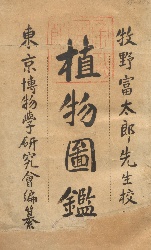 牧野富太郎先生校
植物圖鑑
東京博物學研究會編纂